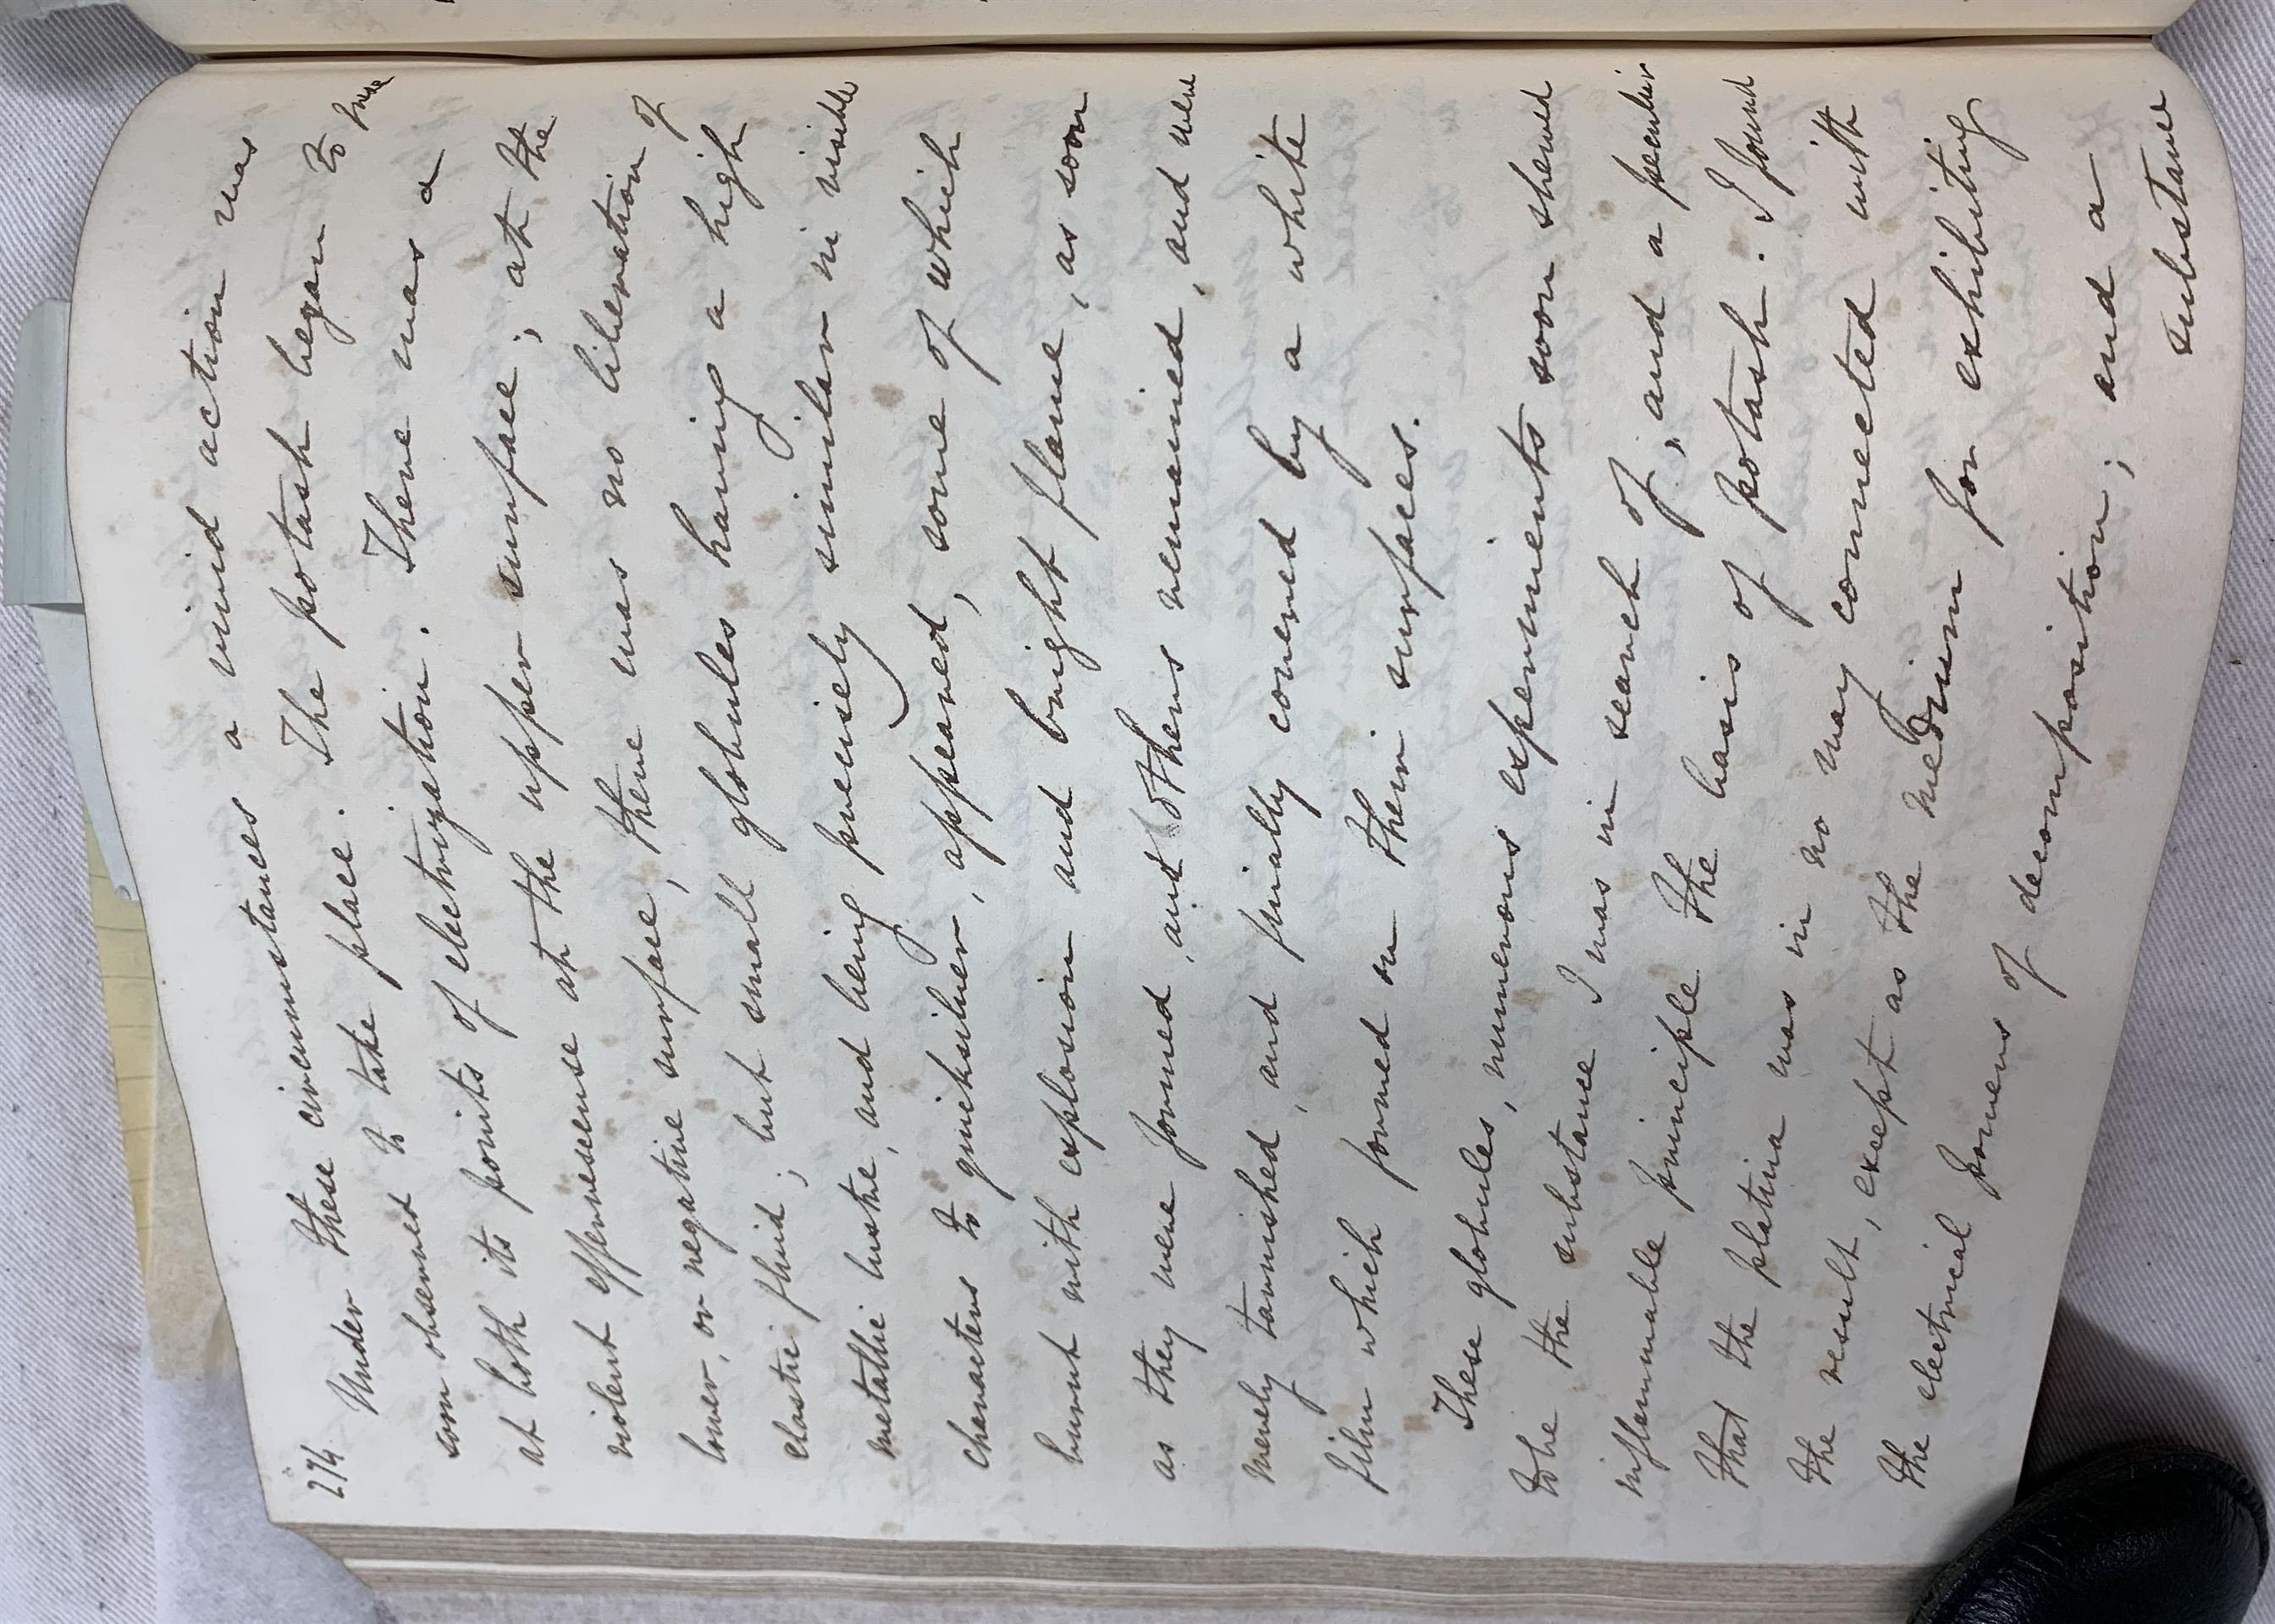 274.
Under these circumstances a vivid action was
soon observed to take place. The potash began to fuse
at both its points of electrization. There was a
violent effervescence at the upper surface; at the
lower, or negative surface, there was no liberation of
elastic fluid; but small globules having a high
metallic lustre, and being precisely similar in visible
characters to quicksilver, appeared, some of which
burnt with explosion and bright flame, as soon
as they were formed, and others remained, and were
merely tarnished, and finally covered by a white
film which formed on their surfaces.
These globules, numerous experiments soon shewed
to be the substance I was in search of, and a peculiar
inflammable principle the basis of potash. I found
that the platina was in no way connected with
the result, except as the medium for exhibiting
the electrical powers of decomposition; and a
substance